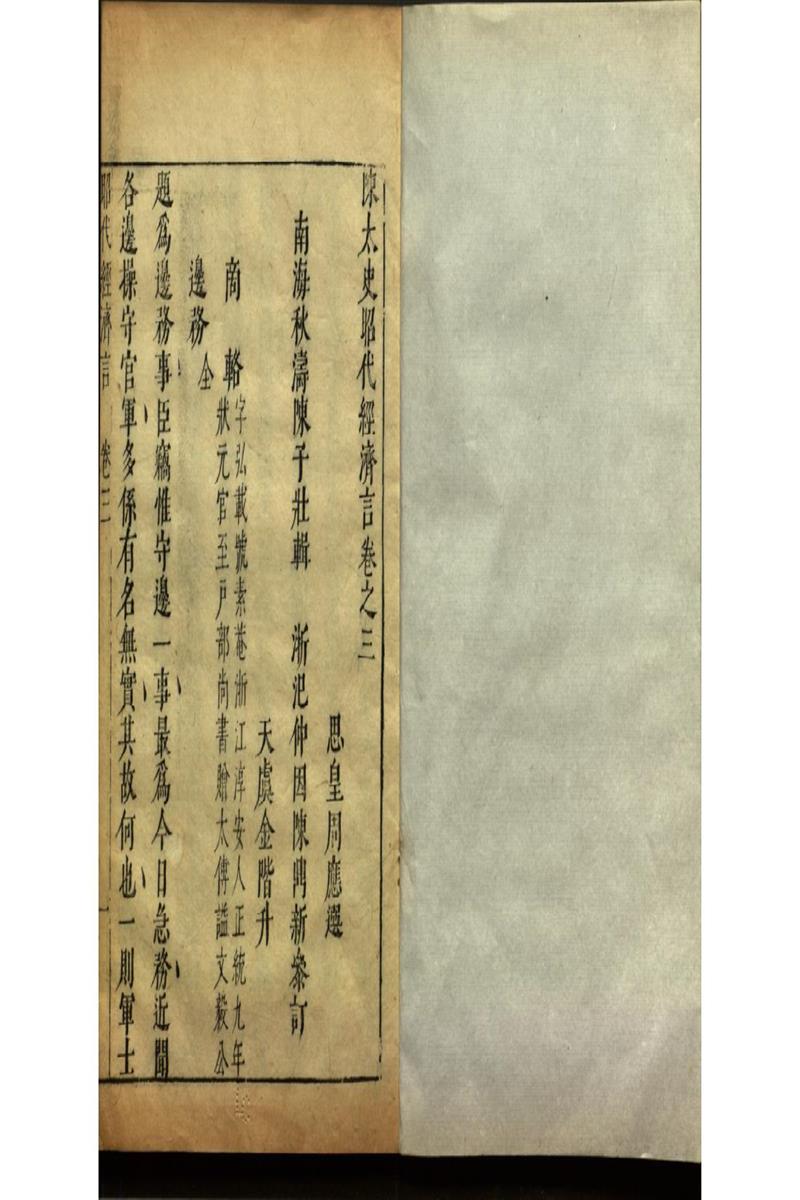 陳太史昭代經濟言卷之三
思皇周應選
南海秋濤陳子壯輯 浙汜仲因陳陾新叅訂
天虞金階升
商輅字弘載號素菴浙江淳安人正統九年
狀元官至戸部尚書贈太傅謚文毅公
邊務全
題爲邊務事臣竊惟守邊一事最爲今日急務近聞
各邊操守官軍多係有名無實其故何也一則軍士
昭代經濟言 卷三 一